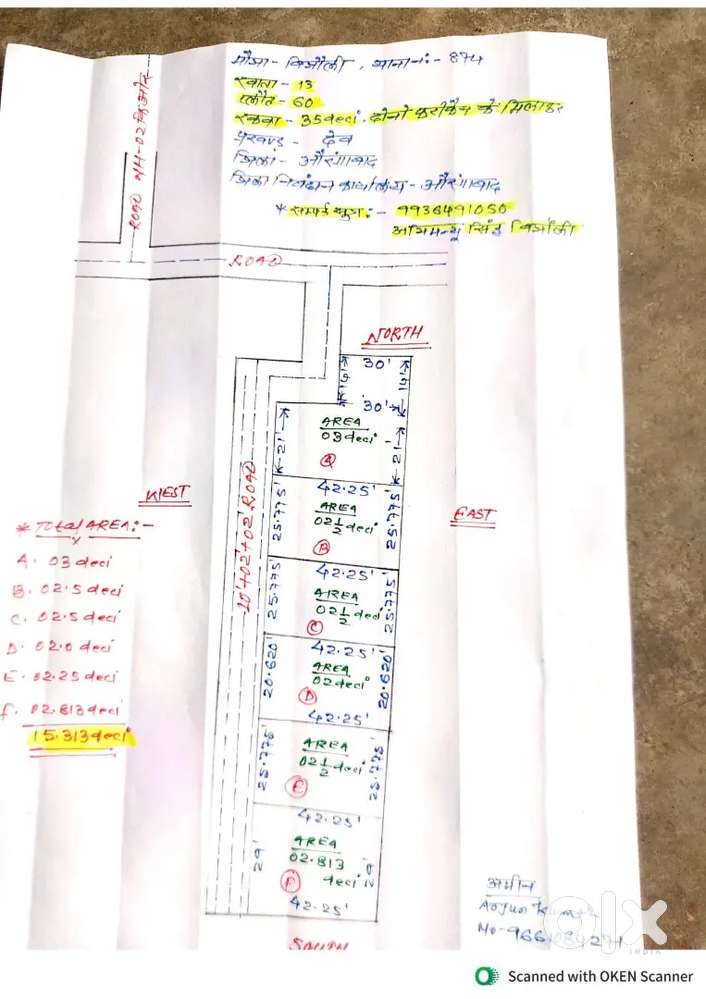 मौजा - बिजौली, थाना नं: - 874
खाता - 13
प्लौट - 60
रकवा - 35 deci. दोनो फरीकैन के मिलाकर
प्रखण्ड - देव
जिला - औरंगाबाद
जिला निबंधन कार्यालय - औरंगाबाद
* सम्पर्क सुत्र: - 9936491050
सिंह बिजौली
ROAD NH-02 कि ओर
ROAD
NORTH
30'
30'
AREA
03 deci
A
21'
21'
42.25'
AREA
02 1/2 deci
B
25.775'
25.775'
42.25'
AREA
02 1/2 deci
C
25.775'
25.775'
42.25'
AREA
02 deci
D
20.620'
20.620'
42.25'
AREA
02 1/2 deci
E
25.775'
25.775'
42.25'
AREA
02.813
deci
F
29'
29'
42.25'
SOUTH
WEST
EAST
10'+02'+02' ROAD
* Total AREA: -
A. 03 deci
B. 02.5 deci
C. 02.5 deci
D. 02.0 deci
E. 02.25 deci
F. 02.813 deci
15.313 deci
अमीन
Arjun
Mo-
olx
INDIA
Scanned with OKEN Scanner